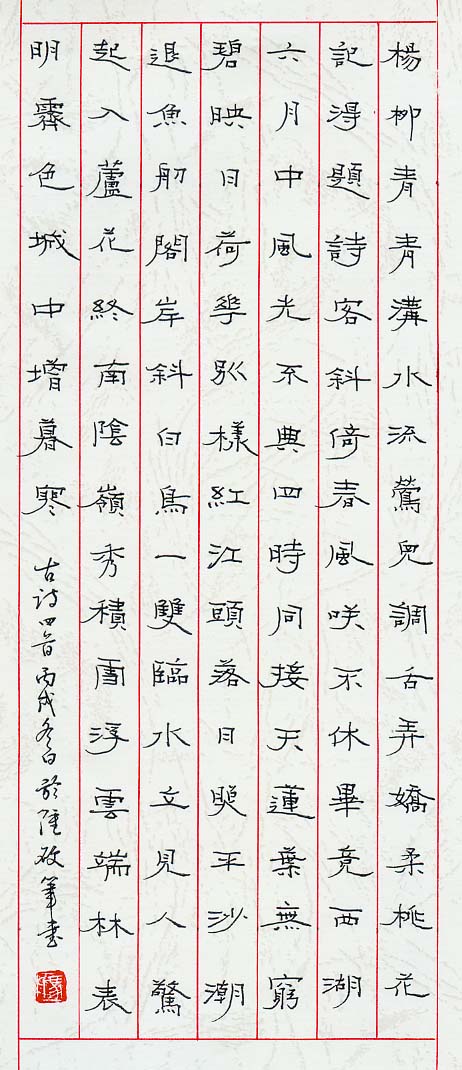 楊柳青青溝水流鶯兒調舌弄嬌柔桃花
記得題詩客斜倚春風咲不休畢竟西湖
六月中風光不與四時同接天蓮葉無窮
碧映日荷華別樣紅江頭落日照平沙潮
退魚舠閣岸斜白鳥一雙臨水立見人驚
起入蘆花終南陰嶺秀積雪浮雲端林表
明霽色城中增暮寒
古诗四首丙戌冬日於